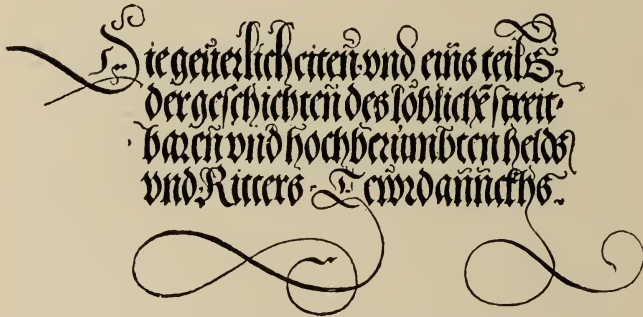 Die geüerlicheiten vnd eins teils
der geschichten des loblichen streit-
baren vnd hochberümbten helds
vnd Ritters Tewrdannckhs.